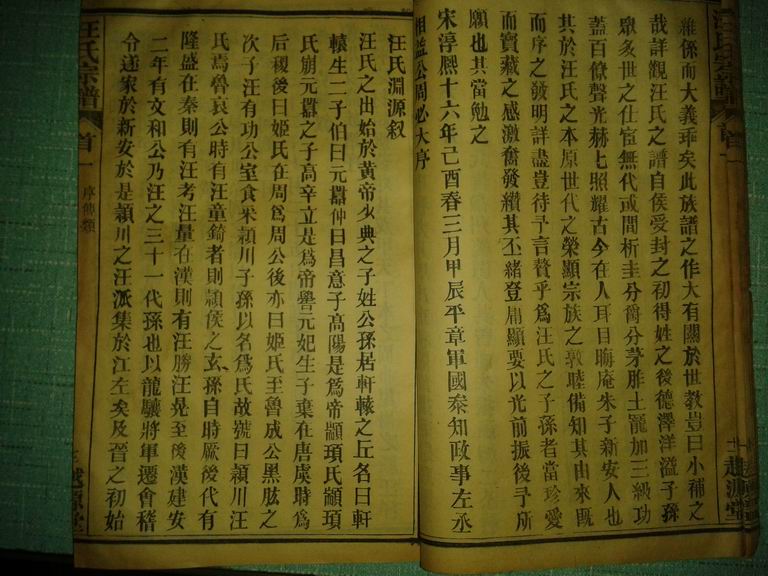 雖係而大義乖矣此族譜之作大有關於世教豈曰小補之
哉詳觀汪氏之譜自侯受封之初得姓之後德澤洋溢子孫
眾多世之仕宦無代或間析圭分爵分茅胙土寵加三級功
蓋百僚聲光赫七照耀古今在人耳目晦庵朱子新安人也
其於汪氏之本原世代之榮顯宗族之敦睦備知其由來既
而序之發明詳盡豈待予言贅乎為汪氏之子孫者當珍愛
而寶藏之感激奮發纘其丕緒登庸顯要以光前振後予所
願也其當勉之
宋淳熈十六年己酉春三月甲辰平章軍國泰知政事左丞
相益公周必大序
汪氏淵源叙
汪氏之出始於黃帝少典之子姓公孫居軒轅之丘名曰軒
轅生二子伯曰元囂仲曰昌意子高陽是為帝顓頊氏顓頊
氏崩元囂之子高辛立是為帝嚳元妃生子棄在唐虞時為
后稷後曰姬氏在周為周公後亦曰姬氏至魯成公黑肱之
次子汪有功公室食采潁川子孫以名為氏故號曰潁川汪
氏焉魯哀公時有汪童錡者則潁侯之玄孫自時厥後代有
隆盛在秦則有汪考汪量在漢則有汪勝汪晃至後漢建安
二年有文和公乃汪之三十一代孫也以龍驤將軍遷會稽
令遂家於新安於是潁川之汪派集於江左矣及晉之初始
汪氏宗譜
首一
序傳類
三
越源堂